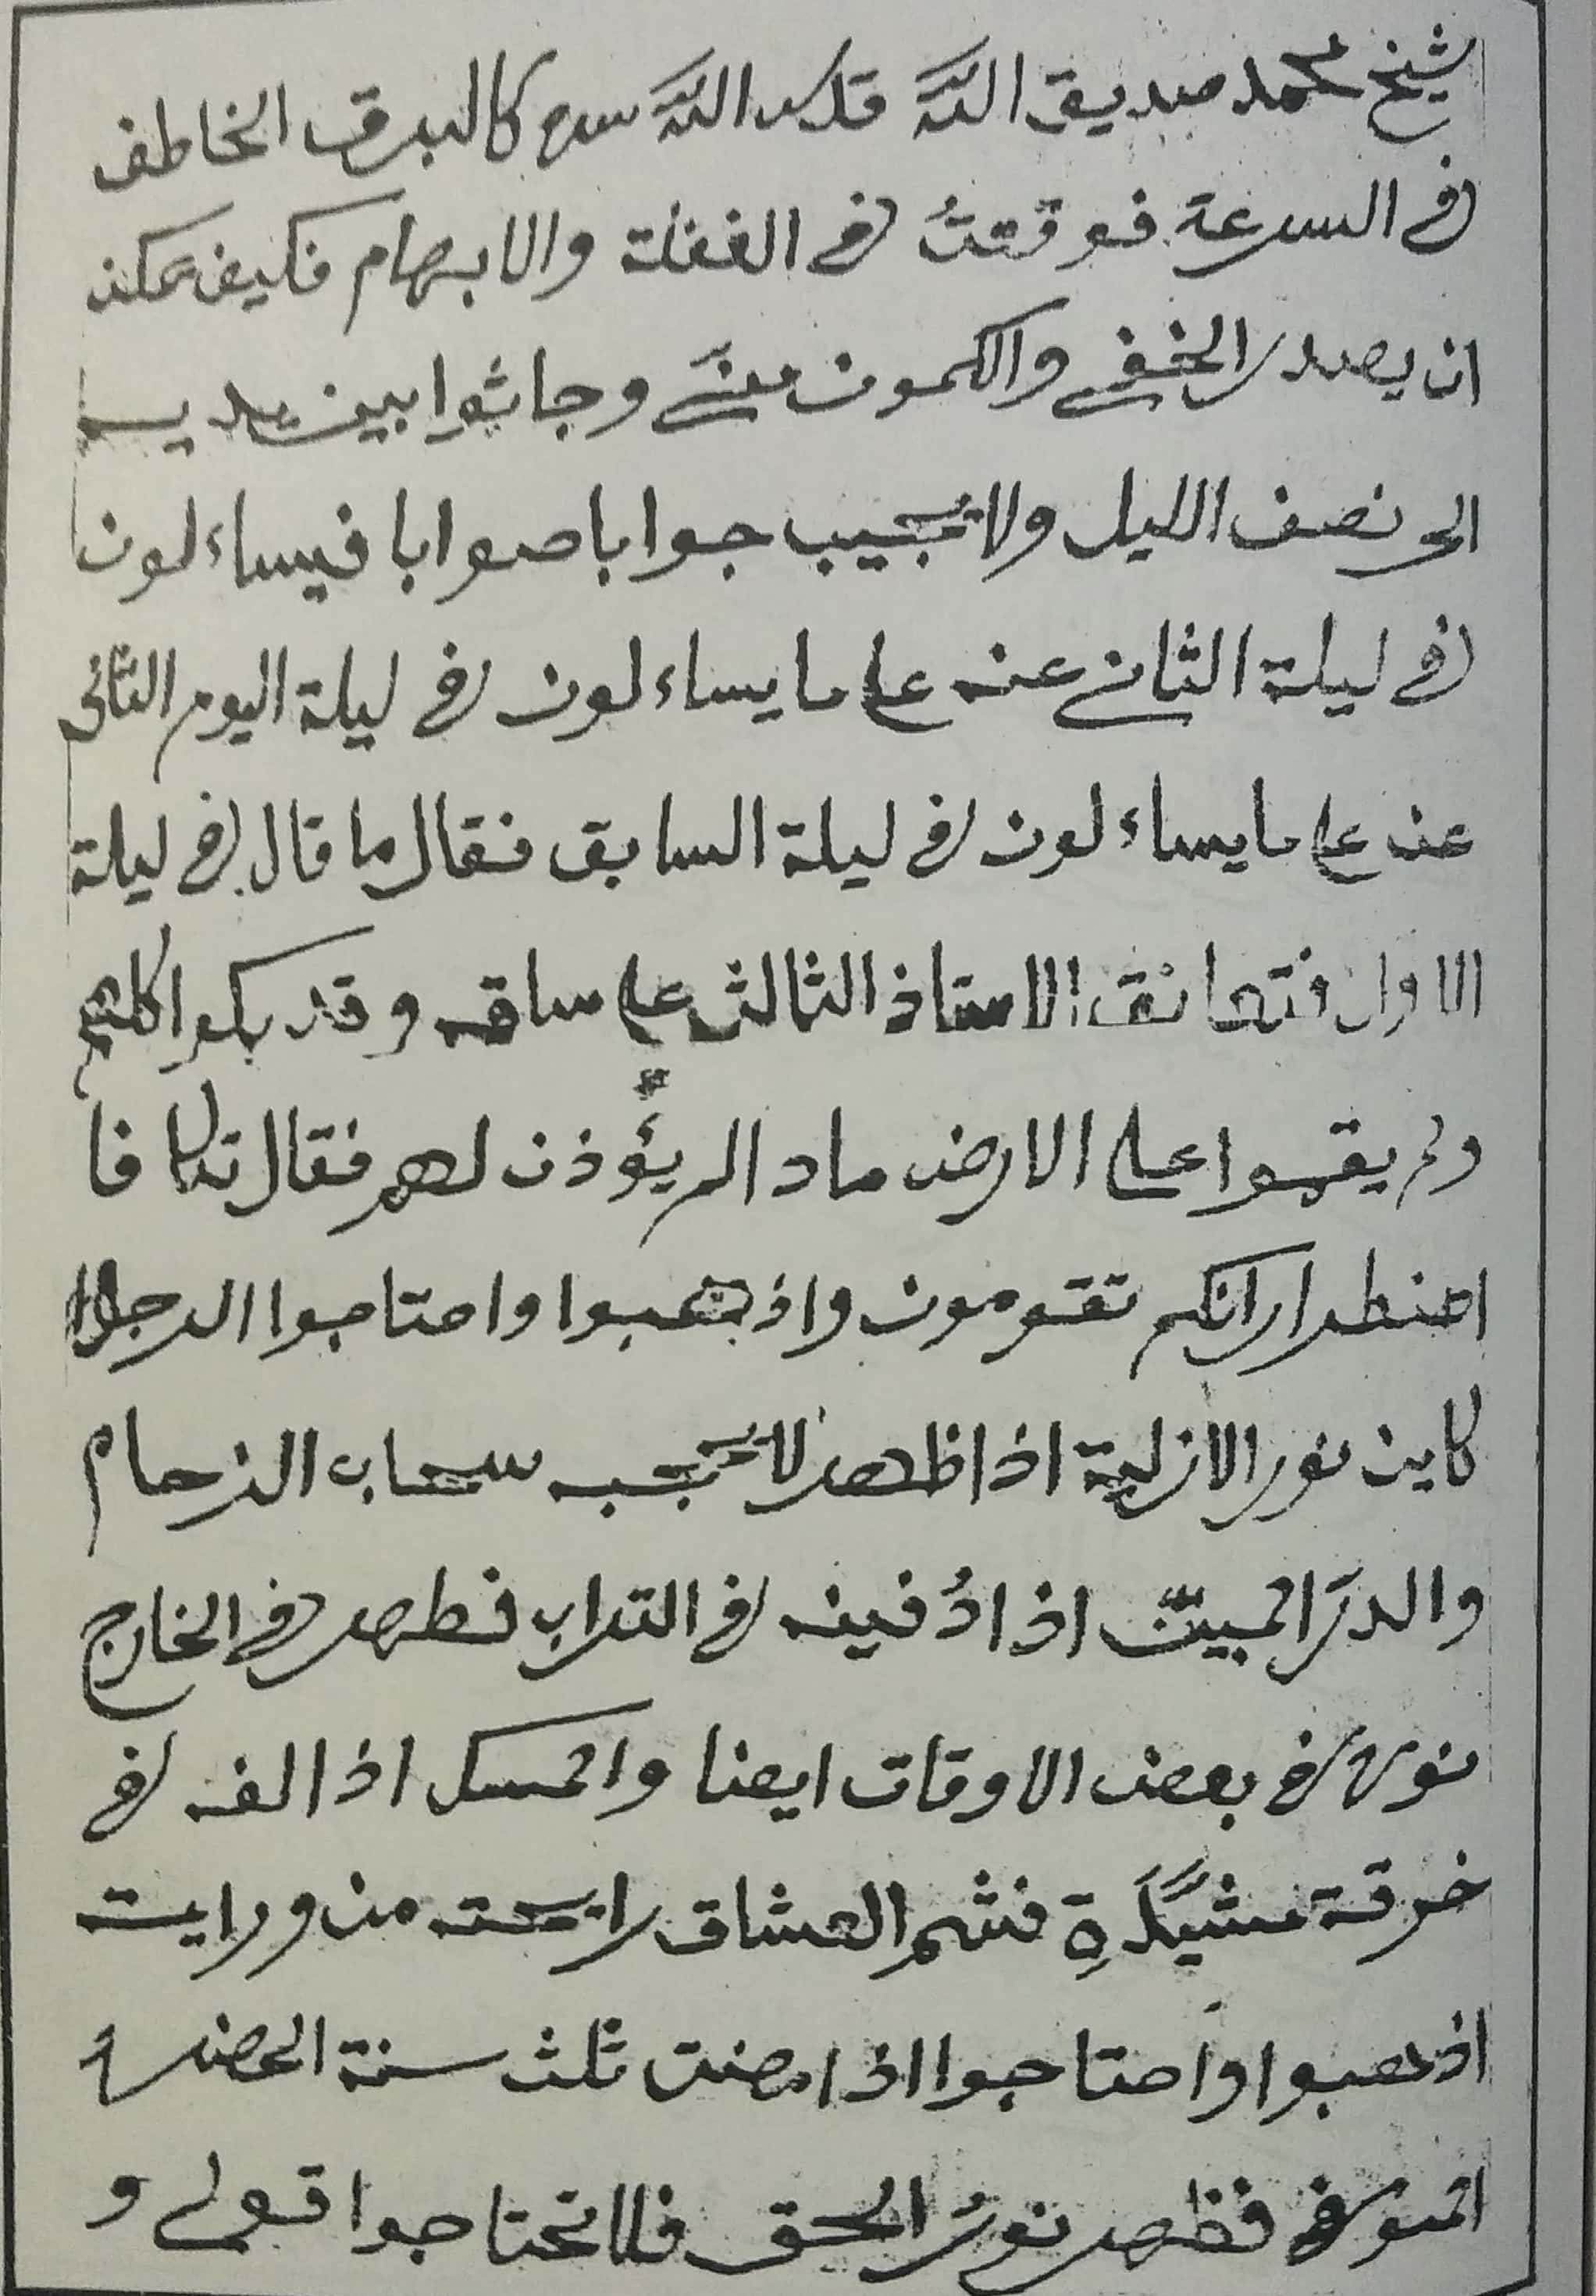 شيخ محمد صديق اللّٰه قدس اللّٰه سره كالبرق الخاطف
فى السرعة فوقعتُ فى الغفلة والابهام فكيف يمكن
ان يصدر الخفى والكمون منّى وجاثوا بين يديه
الى نصف الليل ولا يجيب جوابا صوابا فيساءلون
فى ليلة الثانى عنه على ما يساءلون فى ليلة اليوم الثانى
عنه على ما يساءلون فى ليلة السابق فقال ما قال فى ليلة
الاول فتعانق الاستاذ الثالث على ساقه وقد بكوا كلهم
ولم يقوموا على الارض مادا لم يؤذن لهم فقال تدلا فا
اضطرارا انكم تقومون واذهبوا واحتاجوا الرجوا
كاين نور الازلية اذا ظهر لا يحجبه سحاب الزحام
والدرّ المبيّن اذا دُفينه فى التراب فظهر فى الخارج
نوره فى بعض الاوقات ايضا والمسك اذا لفه فى
خرقة مشيَّدَةٍ فشم العشاق رايحته من ورايته
اذهبوا واحتاجوا اذا مضت ثلث سنة الحضرة
فظهر نورُ الحق فلا تحتاجوا قولى و